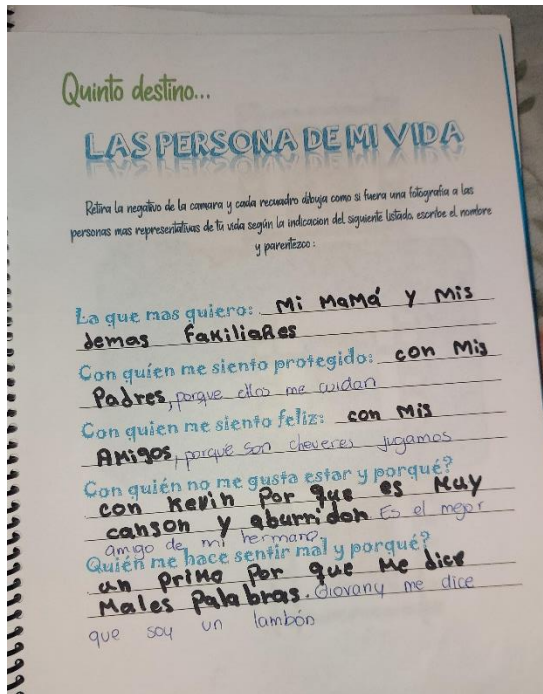 Quinto destino...
LAS PERSONA DE MI VIDA
Retira la negativo de la camara y cada recuadro dibuja como si fuera una fotografia a las
personas mas representativas de tú vida según la indicacion del siguiente listado, escribe el nombre
y parentezco :
La que mas quiero: Mi MaMá y Mis
demas faKiliaRes
Con quien me siento protegido: con Mis
Padres, porque ellos me cuidan
Con quien me siento feliz: con Mis
AMigos, porque son cheveres jugamos
Con quién no me gusta estar y porqué?
con Kevin Por que es Muy
canson y aburridon Es el mejor
amigo de mi hermano.
Quién me hace sentir mal y porqué?
un primo Por que Me dice
Males Palabras. Giovany me dice
que soy un lambón